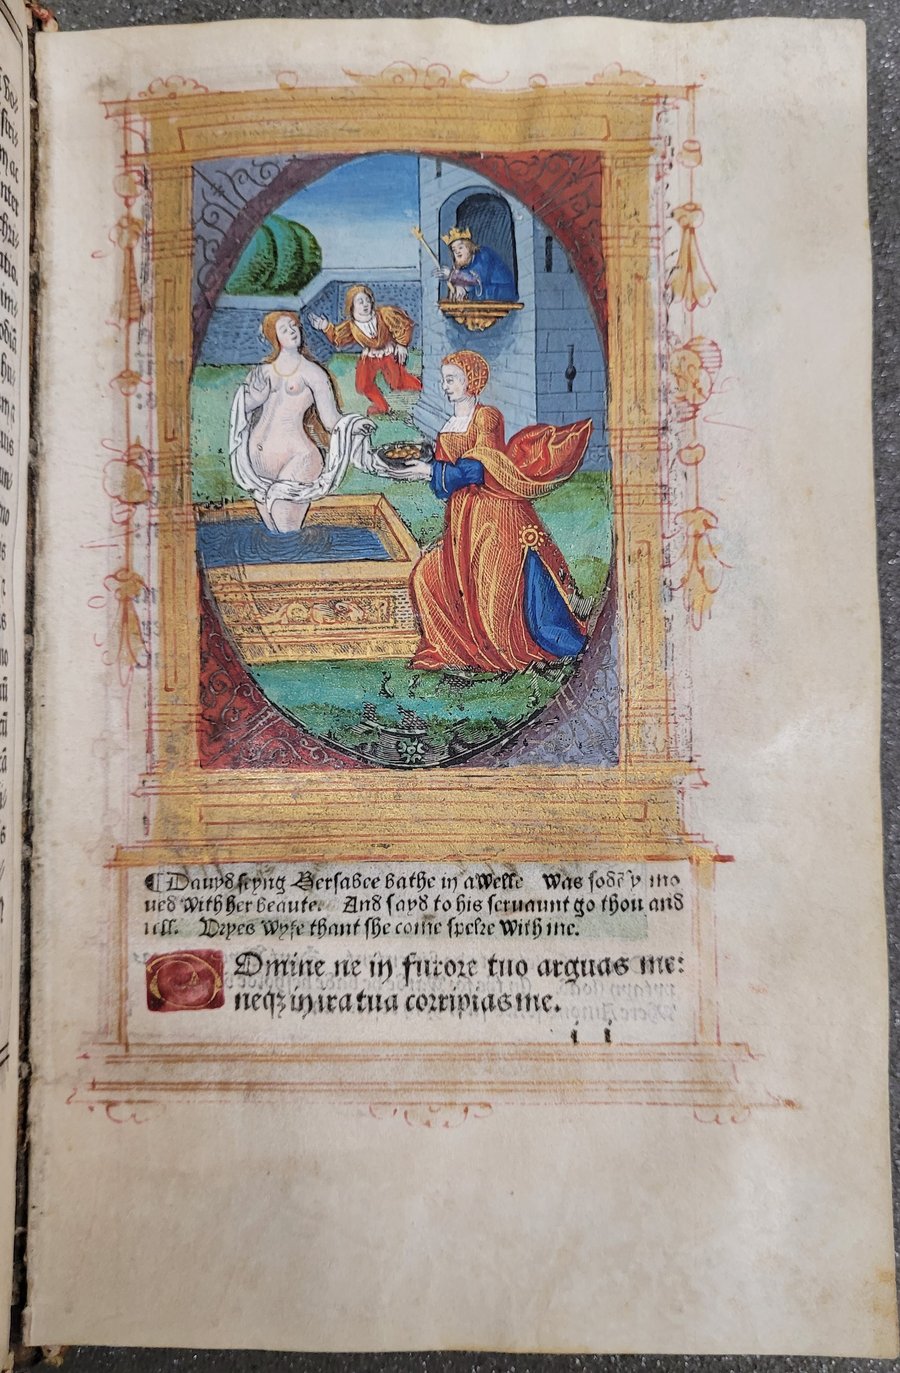 ¶ Dauyd seyng Bersabee bathe in a welle Was sodēly mo
ued with her beaute. And sayd to his seruaunt go thou and
tell. Vryes wyfe that she come speke with me.
Domine ne in furore tuo arguas me:
neqʒ in ira tua corripias me.
i i